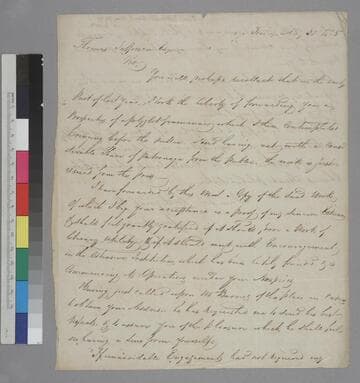 31
Thomas Jefferson Esqr
Sir,
You will perhaps recollect that in the early
Part of last year, I took the Liberty of forwarding you a
Prospectus of a Polyglot Grammar, which I then Contemplated
bringing before the Public. And having met with a
Share of Patronage from the Public, the work is just
issued from the press.
I have forwarded by this Mail a Copy of the said Work,
of which I beg your acceptance as a proof of my sincere Esteem
& shall feel greatly gratified if it should, from a Work of
Literary Utility, & if it should meet with Encouragement,
in the Institution, which has been lately founded & is
Commencing its Operations under your Auspices
Having just called upon Mr of this place in order
to obtain your Address he has requested me to send his best
Respects, & to assure you of the pleasure which he
receiving a line from Yourself.
If unavoidable Engagements had not required my